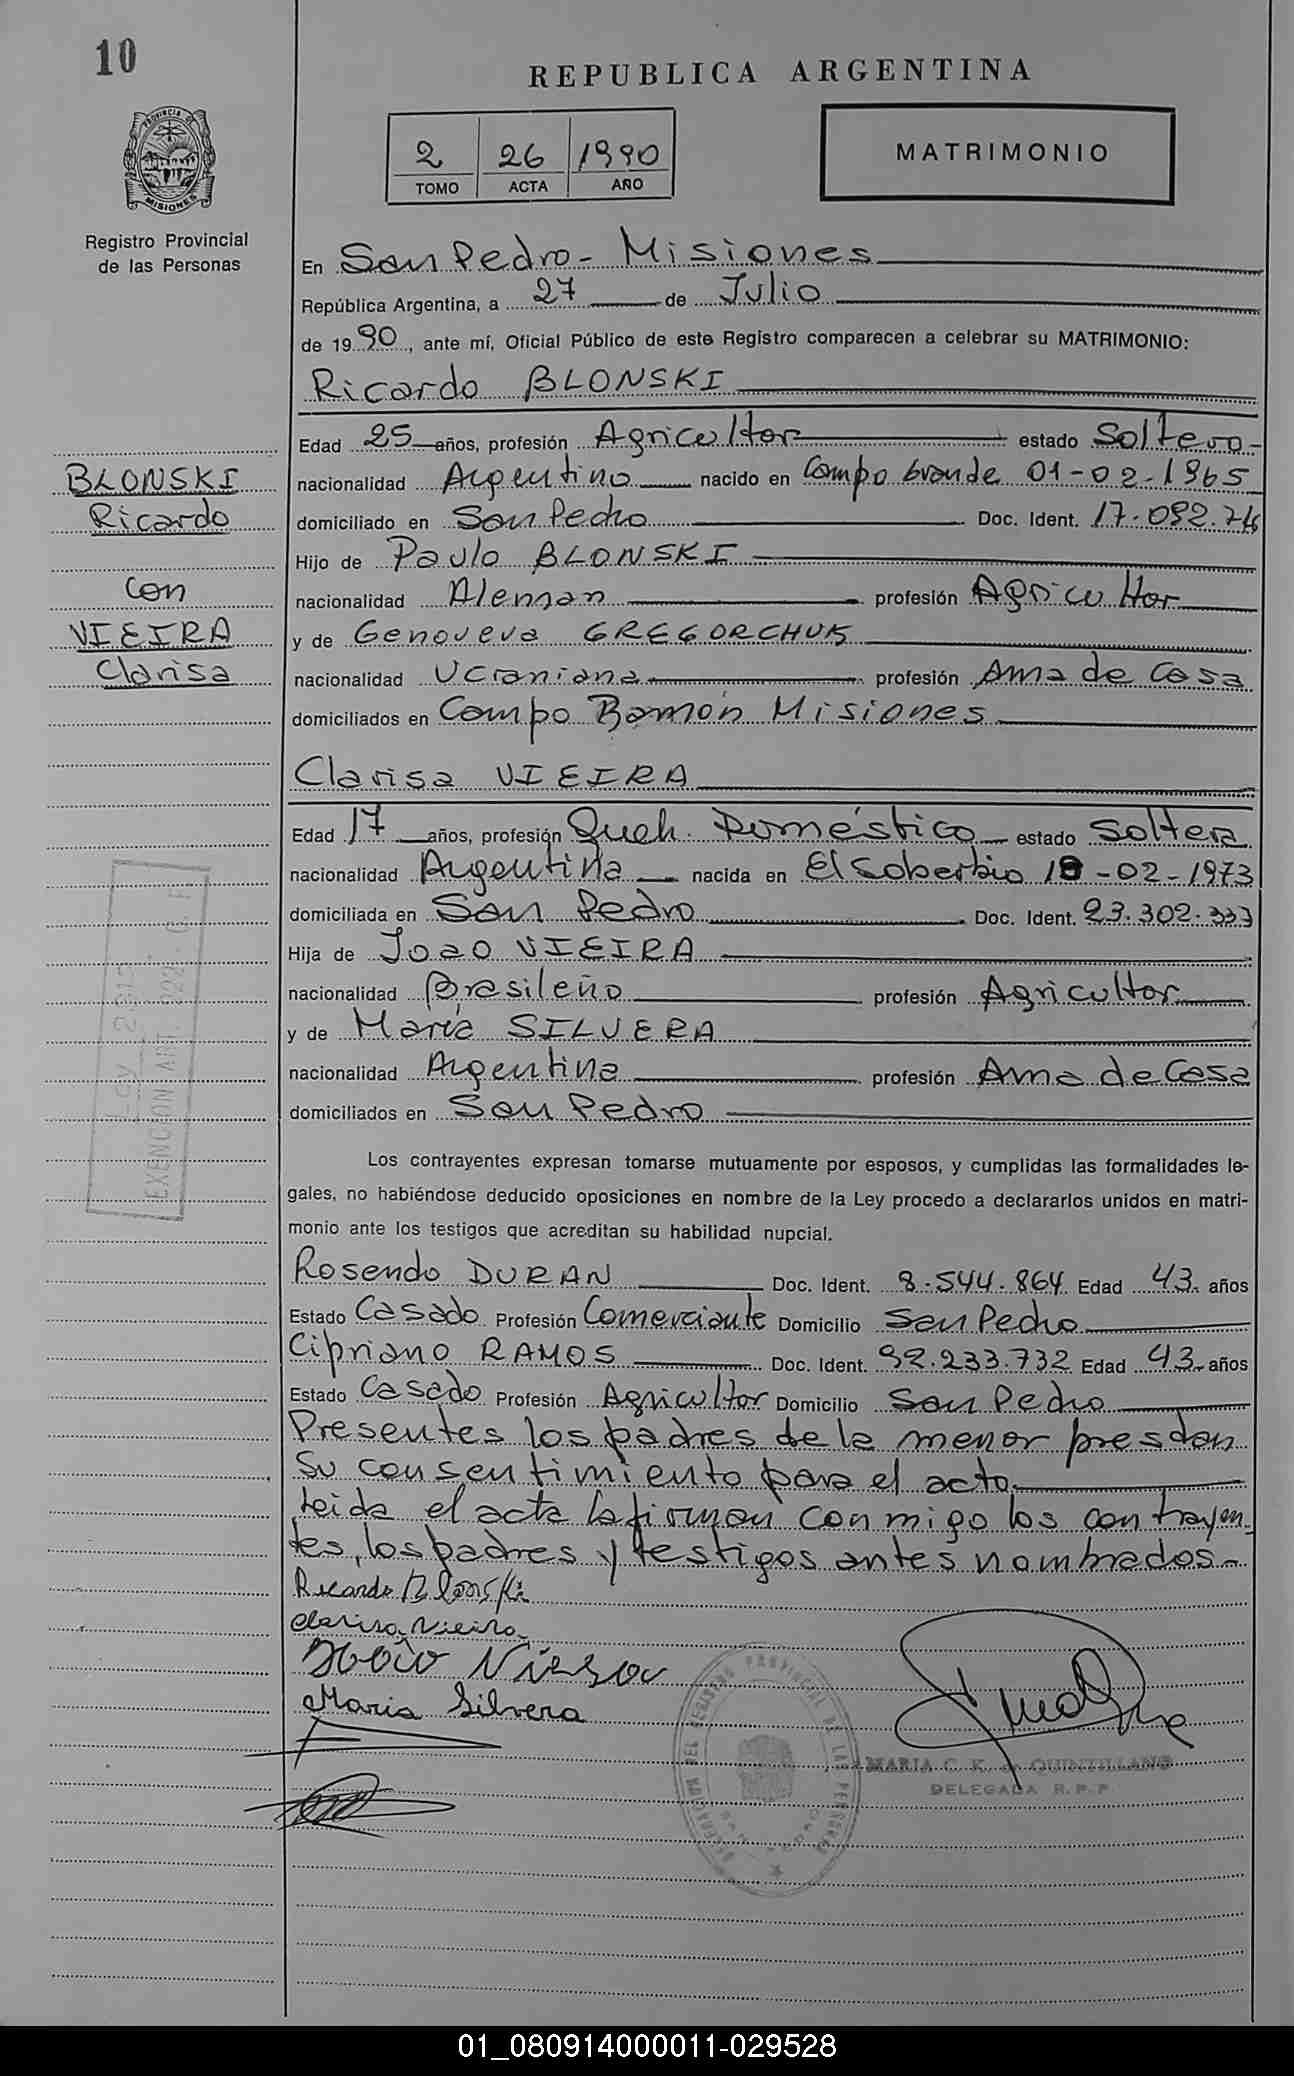 10
REPUBLICA ARGENTINA
PROVINCIA DE
MISIONES
2 26 1990
TOMO ACTA AÑO
MATRIMONIO
Registro Provincial
de las Personas
En San Pedro - Misiones
República Argentina, a 27 de Julio
de 1990, ante mí, Oficial Público de este Registro comparecen a celebrar su MATRIMONIO:
Ricardo BLONSKI
Edad 25 años, profesión Agricultor estado Soltero
BLONSKI
nacionalidad Argentino nacido en Campo Grande 01-02-1965
Ricardo
domiciliado en San Pedro Doc. Ident. 17.092.
Hijo de Paulo BLONSKI
con
nacionalidad Aleman profesión Agricultor
VIEIRA
y de Genoveva GREGORCHUK
Clarisa
nacionalidad Ucraniana profesión Ama de Casa
domiciliados en Campo Ramón Misiones
Clarisa VIEIRA
Edad 17 años, profesión Queh. Doméstico estado Soltera
nacionalidad Argentina nacida en El Soberbio 18-02-1973
domiciliada en San Pedro Doc. Ident. 23.302.333
Hija de Joao VIEIRA
nacionalidad Brasileño profesión Agricultor
y de María SILVERA
nacionalidad Argentina profesión Ama de Casa
domiciliados en San Pedro
Ley 2.915
EXENCION ART. 222 C. F.
Los contrayentes expresan tomarse mutuamente por esposos, y cumplidas las formalidades le-
gales, no habiéndose deducido oposiciones en nombre de la Ley procedo a declararlos unidos en matri-
monio ante los testigos que acreditan su habilidad nupcial.
Rosendo DURAN Doc. Ident. 8.544.864 Edad 43 años
Estado Casado Profesión Comerciante Domicilio San Pedro
Cipriano RAMOS Doc. Ident. 92.233.732 Edad 43 años
Estado Casado Profesión Agricultor Domicilio San Pedro
Presentes los padres de la menor presdan
su consentimiento para el acto
Leida el acta la firman conmigo los contrayen-
tes, los padres y testigos antes nombrados-
Ricardo Blonski
Clarisa Vieira
João Vieira
Maria Silvera
DELEGACION DEL REGISTRO PROVINCIAL DE LAS PERSONAS
SAN PEDRO
MARIA C. K. de QUINTILLANO
DELEGADA R.P.P
01_080914000011-029528